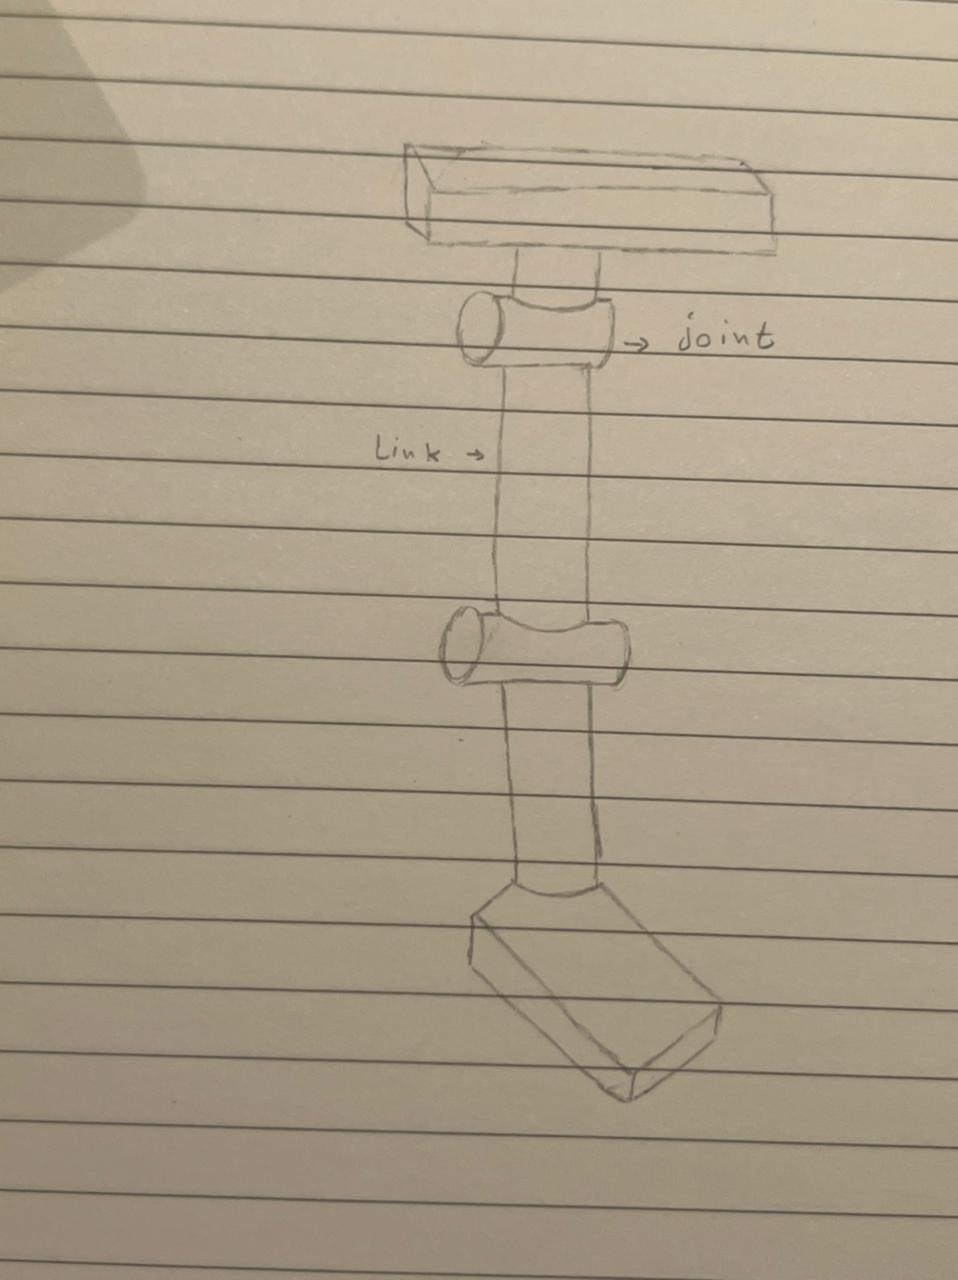 joint
Link